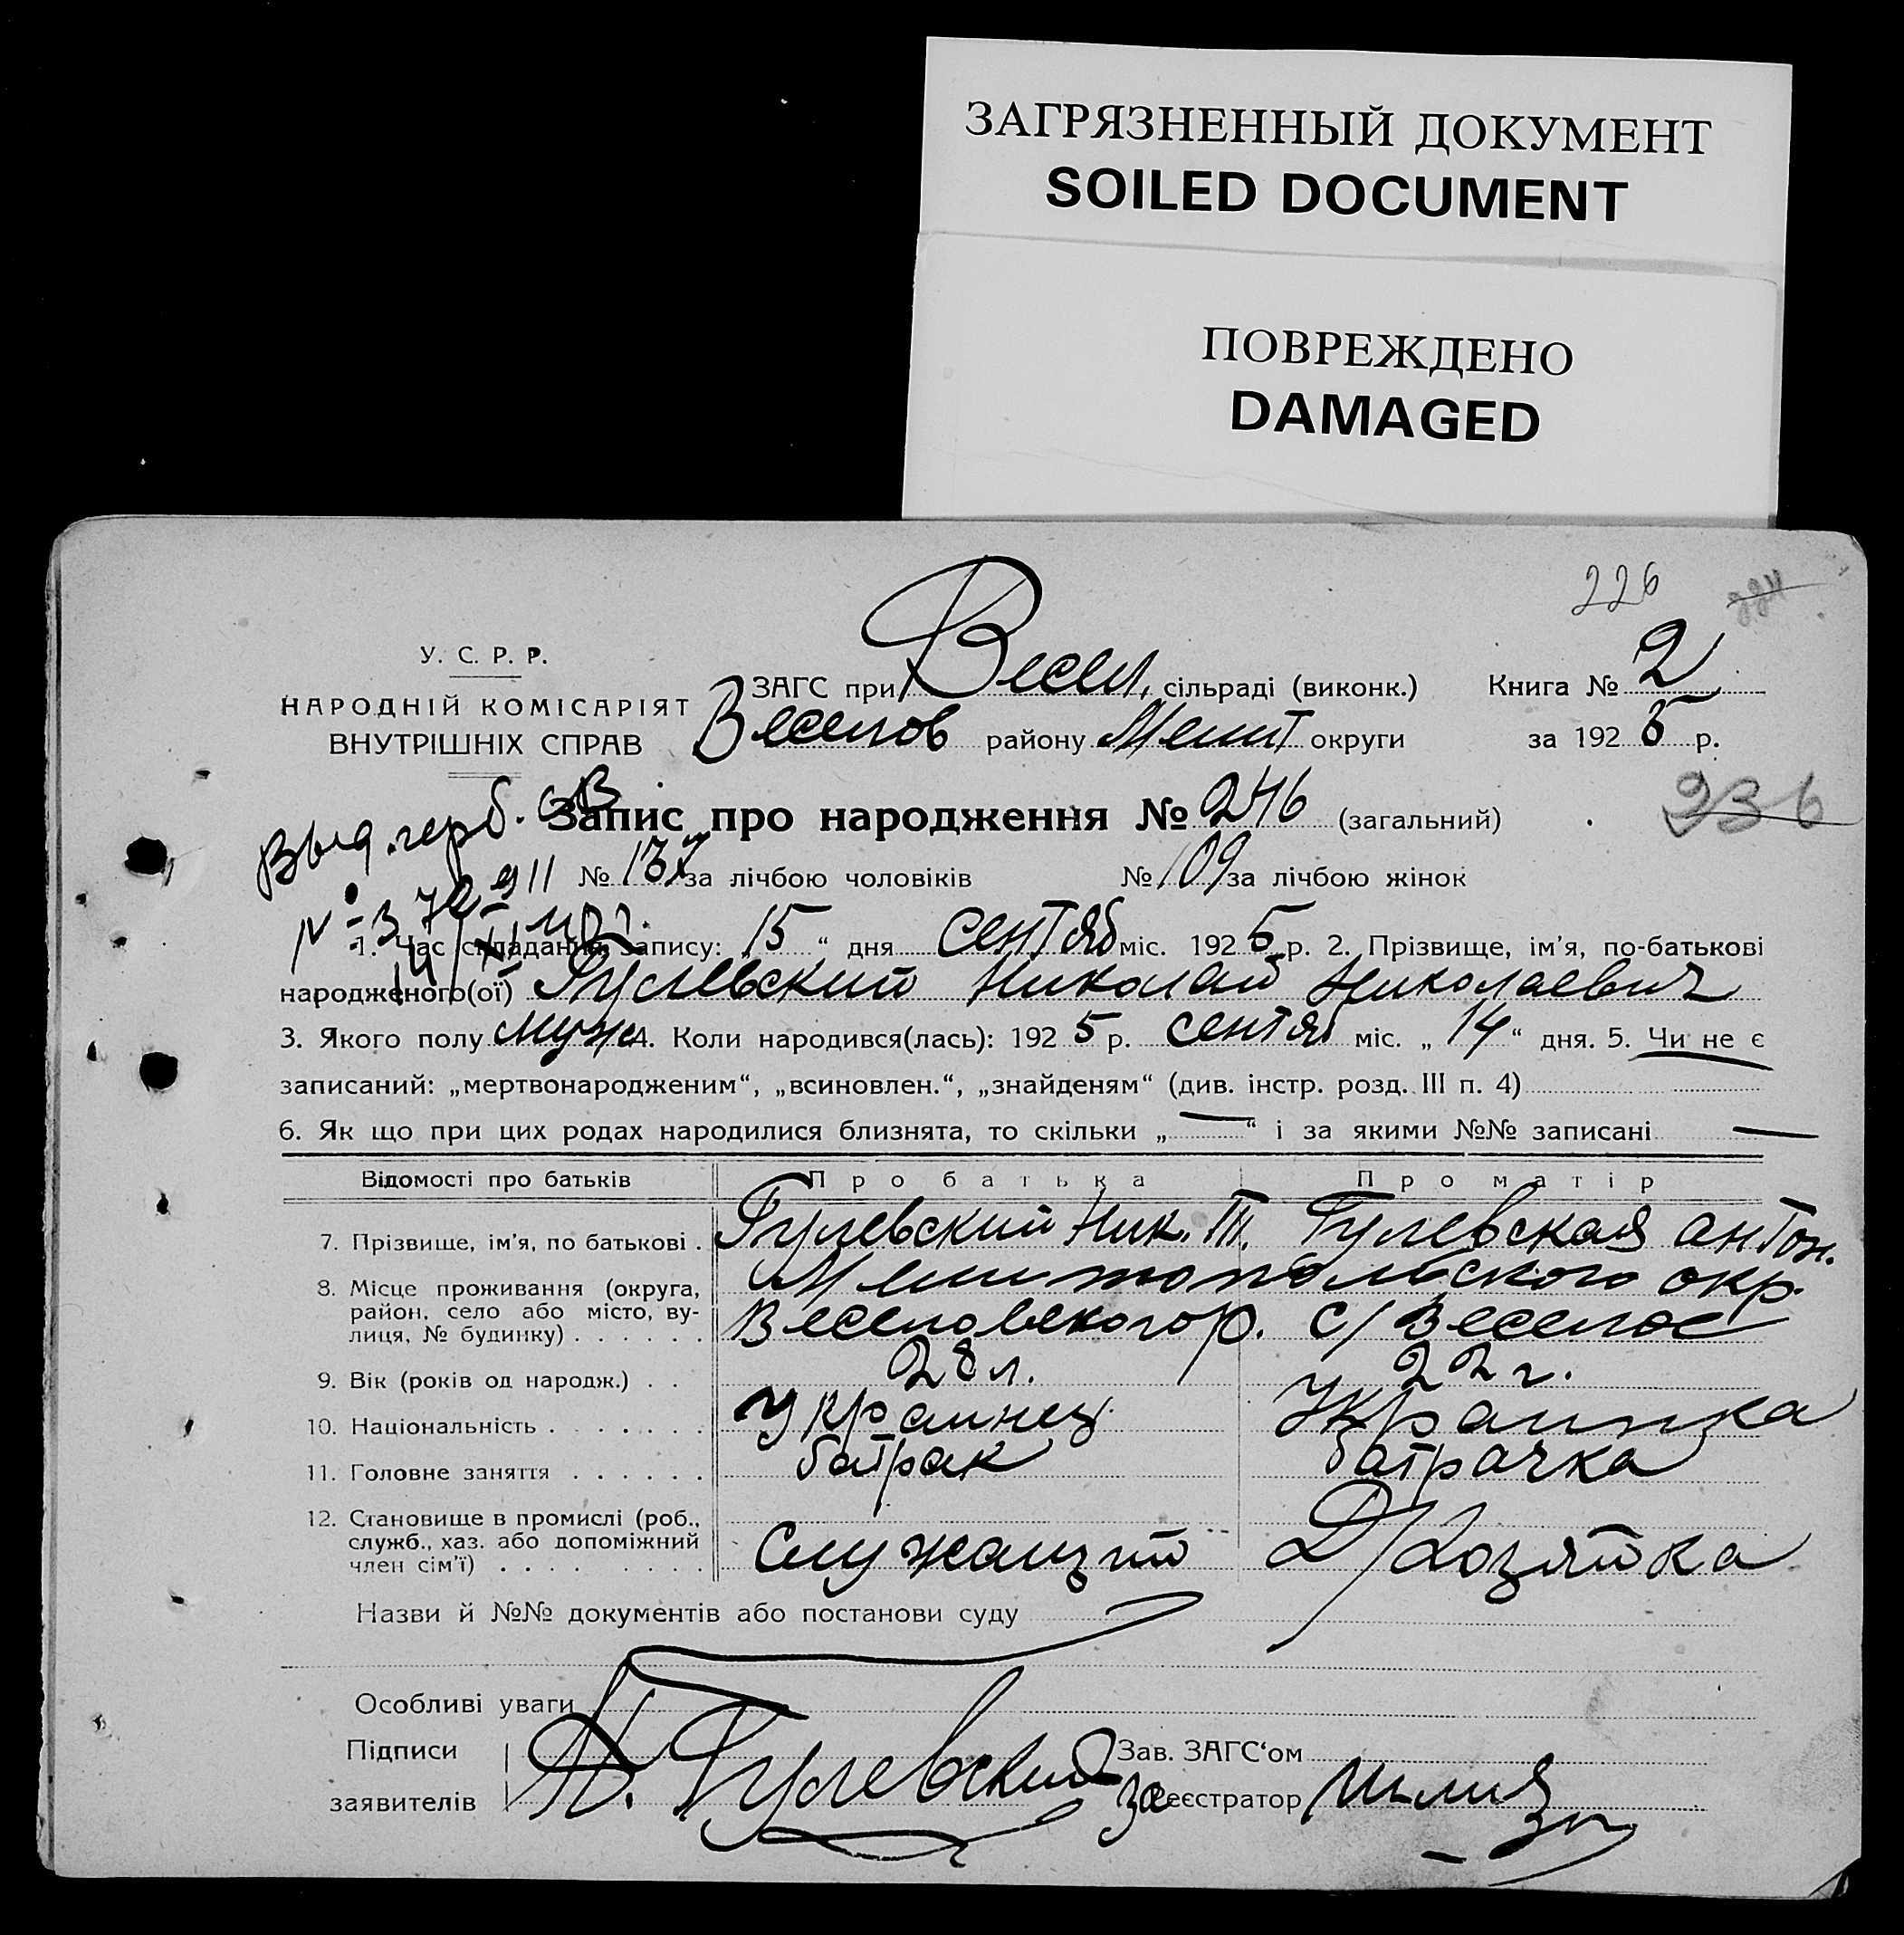 ЗАГРЯЗНЕННЫЙ ДОКУМЕНТ
SOILED DOCUMENT
ПОВРЕЖДЕНО
DAMAGED
226
У. С. Р. Р.
НАРОДНІЙ КОМІСАРІЯТ
ВНУТРІШНІХ СПРАВ
ЗАГС при Весел. сільраді (виконк.) Книга № 2
Веселов району Мелит округи за 192 5 р.
236
Запис про народження № 246 (загальний)
Выд. герб. св
№ 137 за лічбою чоловіків № 109 за лічбою жінок
1. Час складання запису: 15 “ дня сентяб міс. 192 5 р. 2. Прізвище, ім’я, по-батькові
народженого(ої) Гулевский Николай Николаевич
3. Якого полу муж 4. Коли народився(лась): 192 5 р. сентяб міс. „ 14 “ дня. 5. Чи не є
записаний: „мертвонародженим“, „всиновлен.“, „знайденям“ (див. інстр. розд. III п. 4)
6. Як що при цих родах народилися близнята, то скільки „ — “ і за якими №№ записані —
Відомості про батьків Про батька Про матір
7. Прізвище, ім’я, по батькові . Гулевский Ник. Гулевская Антон.
8. Місце проживання (округа, район, село або місто, вулиця, № будинку) . . . . . . Мелитопольского окр.
Веселовского р. с/Веселое
9. Вік (років од народж.) . . 28 л. 22 г.
10. Національність . . . . . . . Украинец Украинка
11. Головне заняття . . . . . . батрак батрачка
12. Становище в промислі (роб., служб., хаз. або допоміжний член сім’ї) . . . . . . . . Служащий Д/Хозяйка
Назви й №№ документів або постанови суду
Особливі уваги
Підписи
заявителів Н. Гулевский
Зав. ЗАГС‘ом
За Реєстратор